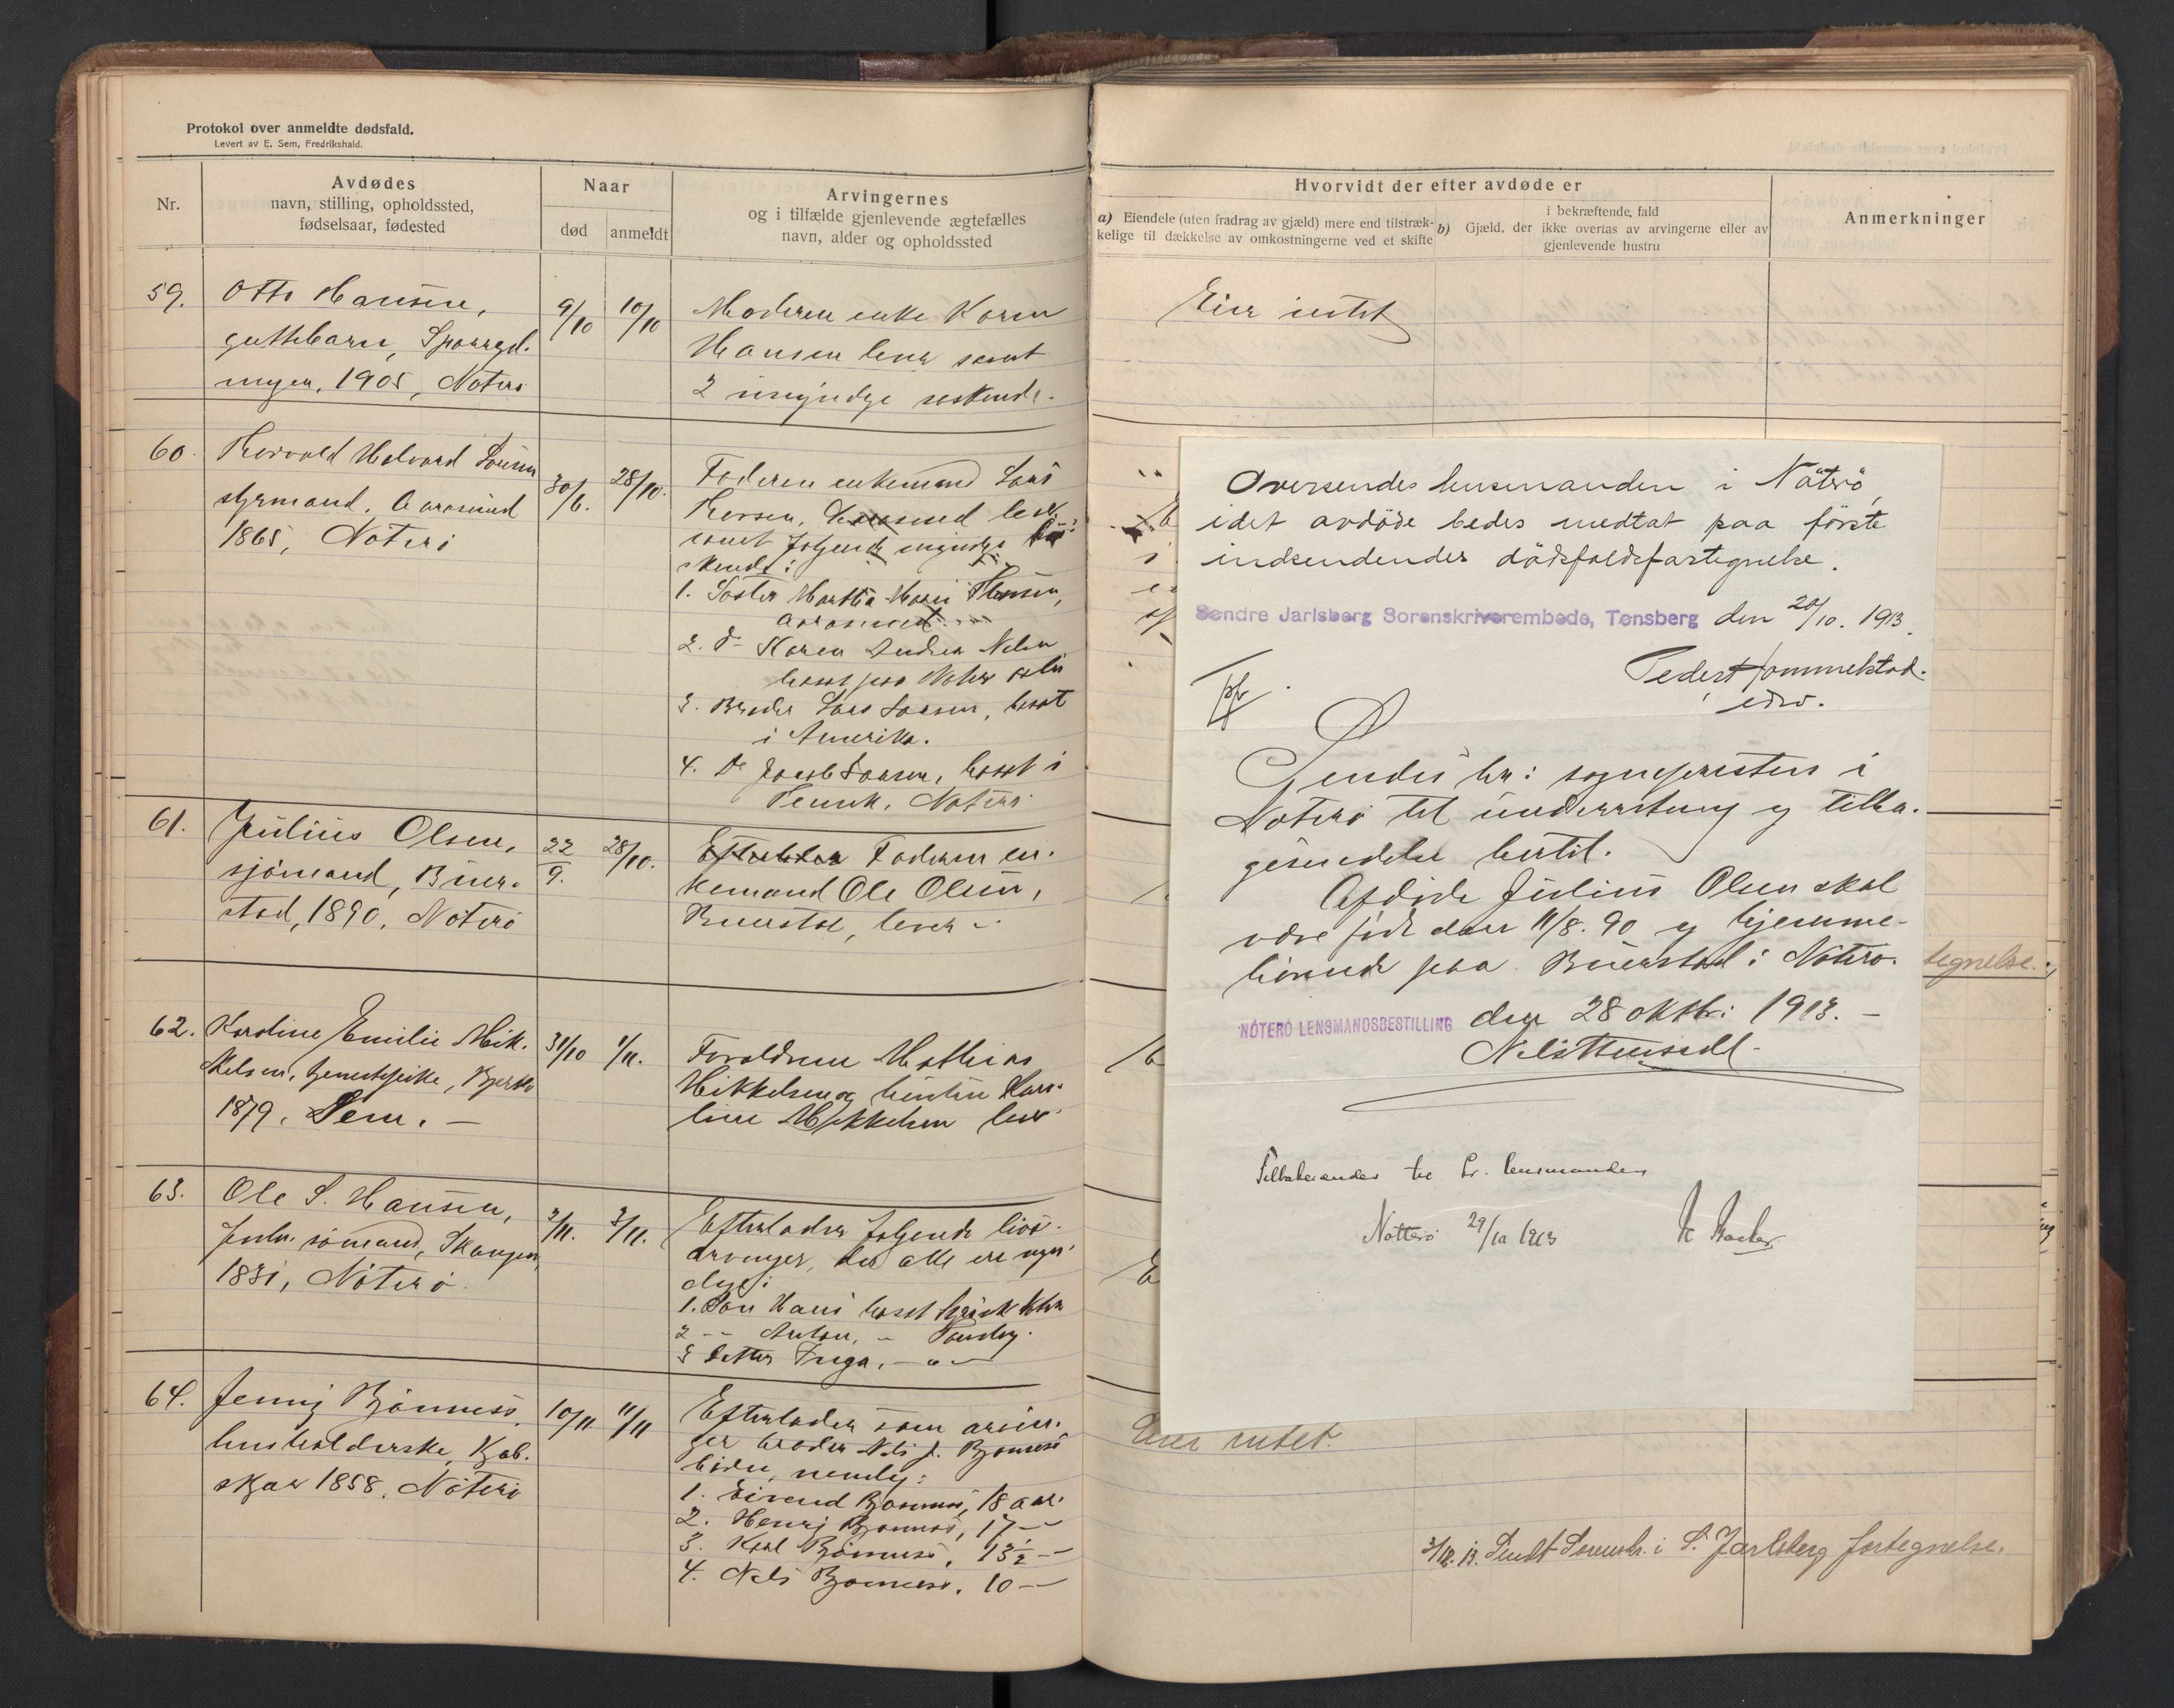 Protokol over anmeldte dødsfald.
Levert av E. Sem, Fredrikshald.
Nr.
Avdødes
navn, stilling, opholdssted,
fødselsaar, fødested
Naar
død
anmeldt
Arvingernes
og i tilfælde gjenlevende ægtefælles
navn, alder og opholdssted
59.
Otto Hansen,
guttebarn,
1905, Nøterø
9/10
10/10
Moderen enke Karen
Hansen lever samt
2 umyndige søskende.
60.
Thorvald Halvard Larsen
styrmand, Aarøsund
1865, Nøterø
30/6.
28/10.
Faderen enkemand Lars
lever
samt følgende myndige
skende:
1. Søster Martha Marie
Aarøsund
2. do Karen Andrea Nilsen
bosat paa Nøterø
3. Broder Lars Larsen, bosat
i Amerika.
4. Do Jacob Larsen, bosat i
Nøterø
61.
Julius Olsen,
sjømand, Buer-
stad, 1890, Nøterø
22/9.
28/10.
Efterlader Faderen en-
kemand Ole Olsen,
Buerstad, lever
62.
Karoline Emilie Mik-
kelsen, tjenestepike,
1879, Sem. —
31/10
1/11.
Forældrene Mathias
Mikkelsen og hustru Karo-
line Mikkelsen lever
63.
Ole S. Hansen,
sømand,
1831, Nøterø.
2/11.
3/11.
Efterlader følgende livs-
arvinger, der alle ere myn-
dige:
1. Søn Hans bosat
2 -- Anton, " Tønsberg.
3 Datter
64.
Jenny Bjønness
husholderske, Kjøb-
skjær 1858, Nøterø
10/11
11/11
Efterlader som arvin-
ger broder Nils J. Bjønness
børn, nemlig:
1. Eivend Bjønness, 18 aar.
2. Henry Bjønness, 17 —
3. Karl Bjønness, 13½ —
4. Nils Bjønness, 10 —
Hvorvidt der efter avdøde er
a) Eiendele (uten fradrag av gjæld) mere end tilstræk-
kelige til dækkelse av omkostningerne ved et skifte
i bekræftende fald
b) Gjæld, der ikke overtas av arvingerne eller av
gjenlevende hustru
Anmerkninger
Eier intet
Oversendes lensmanden i Nøterø,
idet avdøde bedes medtat paa første
indsendendes dødsfaldsfortegnelse.
Søndre Jarlsberg Sorenskriverembede, Tønsberg den 20/10. 1913.
Peder Hommelstad.
edsv.
Sendes hr: sognepresten i
Nøterø til underretning og tilba-
gesendelse hertil.
Afdøde Julius Olsen skal
være født den 11/8. 90 og hjemme-
hørende paa Buerstad i Nøterø.
NØTERØ LENSMANDSBESTILLING den 28 oktbr: 1913. —
Tilbakesendes til hr. lensmanden
Nøtterø 29/10 1913
tegnelse.
Eier intet.
3/12. 13. Sendt Sorenskr. i S. Jarlsberg fortegnelse.